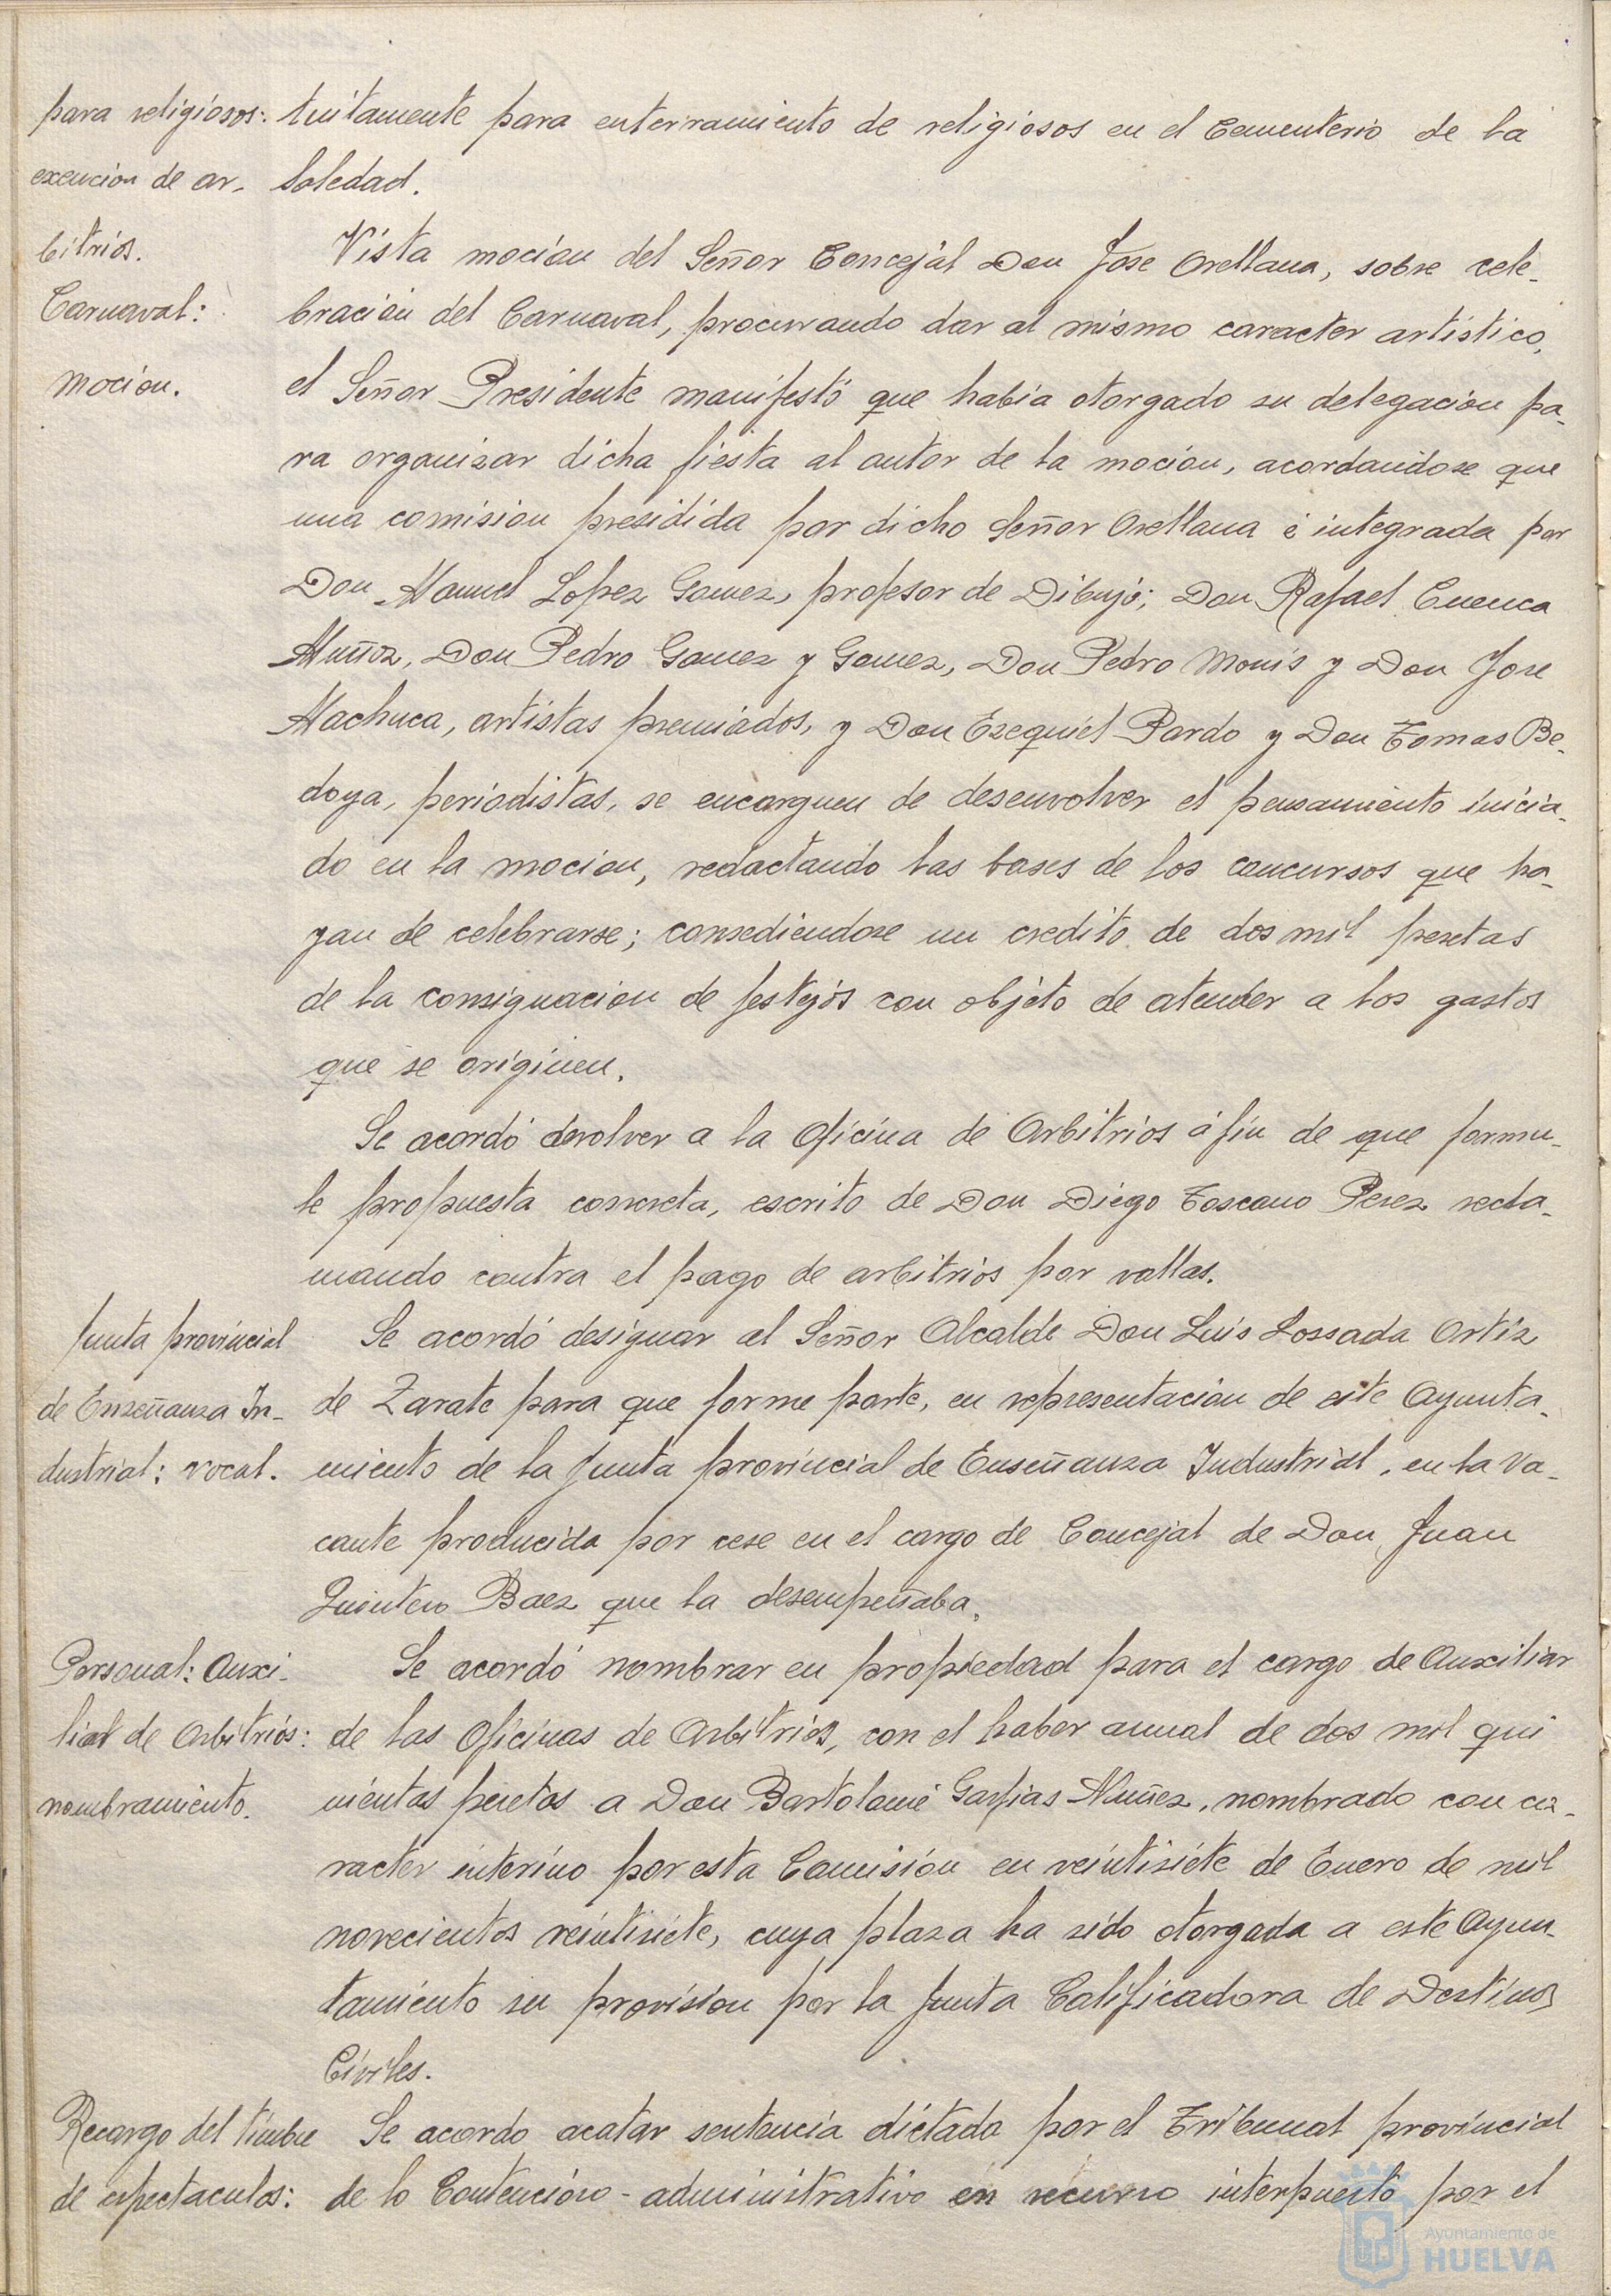 para religiosos: tuitamente para enterramiento de religiosos en el Cementerio de la
exencion de ar- Soledad.
bitrios. Vista mocion del Señor Concejal Don Jose Orellana, sobre cele-
Carnaval: bración del Carnaval, procurando dar al mismo caracter artistico,
mocion. el Señor Presidente manifestó que habia otorgado su delegacion pa-
ra organizar dicha fiesta al autor de la mocion, acordandose que
una comision presidida por dicho Señor Orellana é integrada por
Don Manuel Lopez Gomez, profesor de Dibujo; Don Rafael Cuenca
Muñoz, Don Pedro Gomez y Gomez, Don Pedro Monis y Don Jose
Machuca, artistas premiados, y Don Ezequiel Pardo y Don Tomas Be-
doya, periodistas, se encarguen de desenvolver el pensamiento inicia-
do en la mocion, redactando las bases de los concursos que ha-
yan de celebrarse; consediendose un credito de dos mil pesetas
de la consignacion de festejos con objeto de atender a los gastos
que se originen.
Se acordó devolver a la Oficina de Arbitrios á fin de que formu-
le propuesta concreta, escrito de Don Diego Toscano Perez recla-
mando contra el pago de arbitrios por vallas.
Junta provincial Se acordó designar al Señor Alcalde Don Luis Lossada Ortiz
de Enseñanza In- de Zarate para que forme parte, en representacion de este Ayunta-
dustrial: vocal. miento de la Junta provincial de Enseñanza Industrial, en la va-
cante producida por cese en el cargo de Concejal de Don Juan
Quintero Baez que la desempeñaba.
Personal: Auxi- Se acordó nombrar en propiedad para el cargo de Auxiliar
liar de Arbitrios: de las Oficinas de Arbitrios, con el haber anual de dos mil qui
nombramiento. nientas pesetas a Don Bartolomé Garfias Nuñez, nombrado con ca-
racter interino por esta Comisión en veintisiete de Enero de mil
novecientos veintisiete, cuya plaza ha sido otorgada a este Ayun-
tamiento su provision por la Junta Calificadora de Destinos
Civiles.
Recargo del timbre Se acordo acatar sentencia dictada por el Tribunal provincial
de espectaculos: de lo Contencioso-administrativo en recurso interpuesto por el
Ayuntamiento de
HUELVA